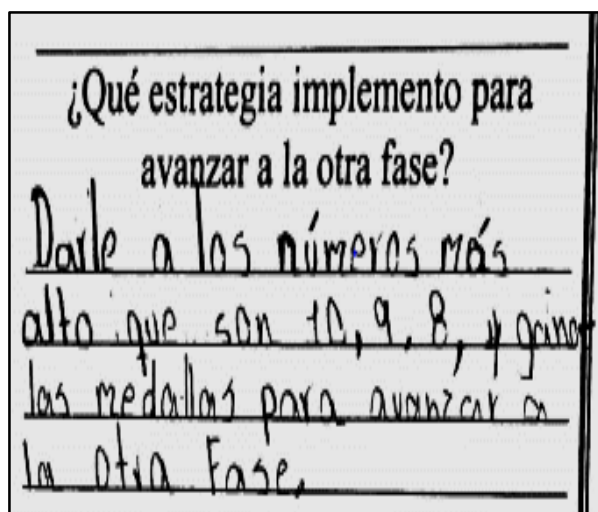 ¿Qué estrategia implemento para
avanzar a la otra fase?
Darle a los números más
alto que son 10, 9, 8, y ganar
las medallas para avanzar a
la otra fase.